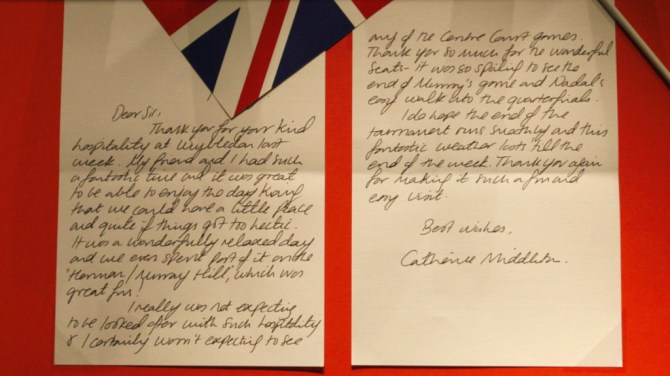 Dear Sir,
Thank you for your kind
hospitality at Wimbledon last
week. My friend and I had such
a fantastic time and it was great
to be able to enjoy the day knowing
that we could have a little peace
and quite if things got too hectic.
It was a wonderfully relaxed day
and we even spent part of it on the
'Henman/Murray Hill', which was
great fun!
I really was not expecting
to be looked after with such hospitality
& I certainly wasn't expecting to see
any of the Centre Court games.
Thank you so much for the wonderful
seats - it was so exciting to see the
end of Murray's game and Nadal's
easy walk into the quarterfinals.
I do hope the end of the
tournament runs smoothly and this
fantastic weather lasts till the
end of the week. Thank you again
for making it such a fun and
easy visit.
Best wishes,
Catherine Middleton.